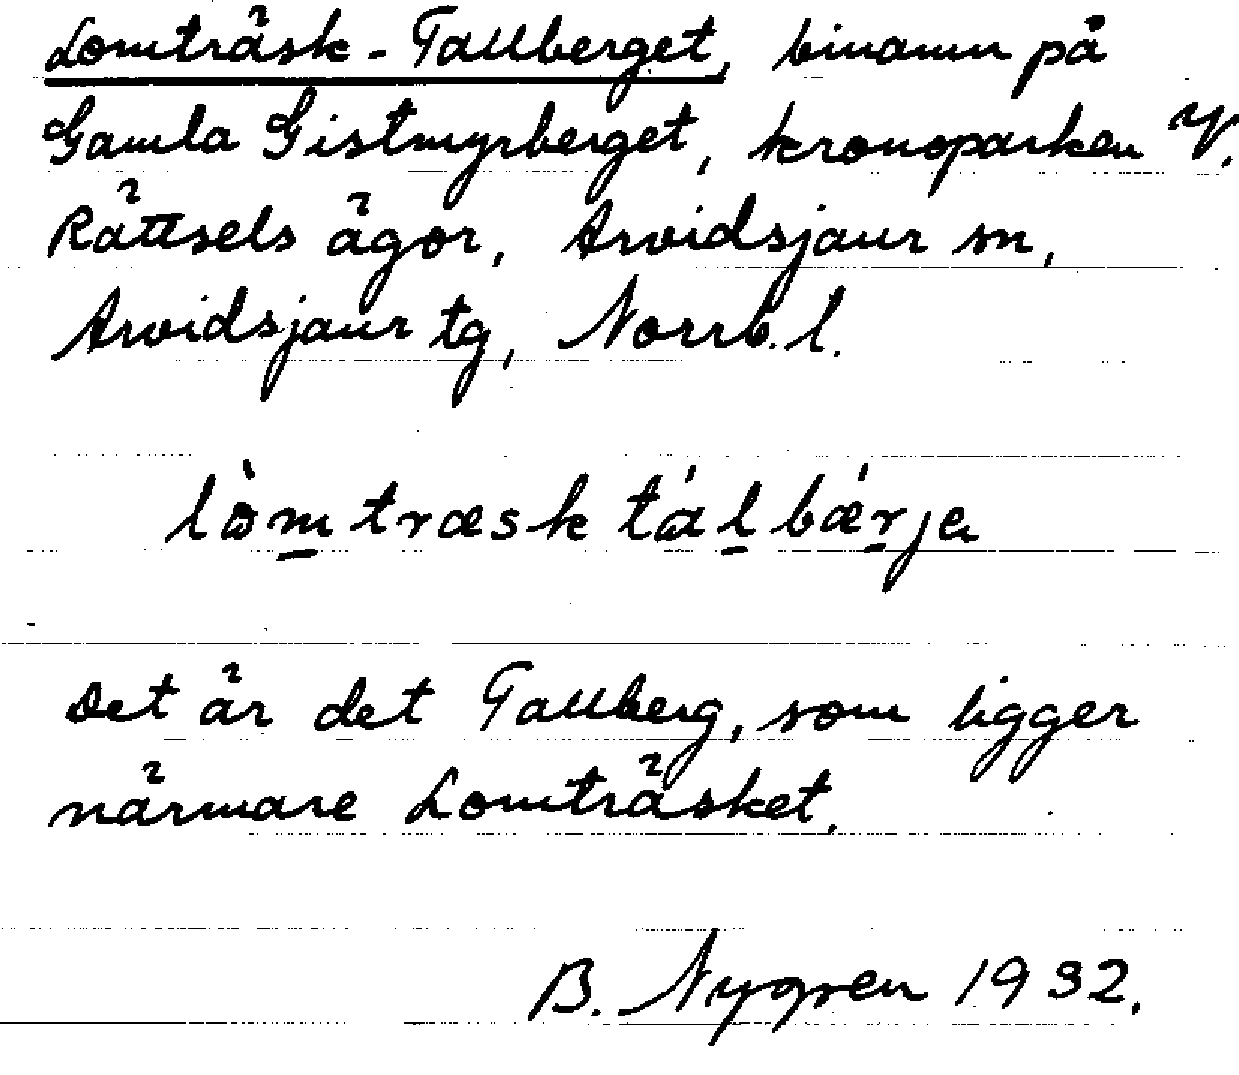 Lomträsk-Tallberget, binamn på
Gamla Gistmyrberget, kronoparken V.
Rättsels ägor, Arvidsjaur sn,
Arvidsjaur tg, Norrb. l.
lò̀m̲træsk tál̲bǽr̲ja
Det är det Tallberg, som ligger
närmare Lomträsket.
B. Nygren 1932.